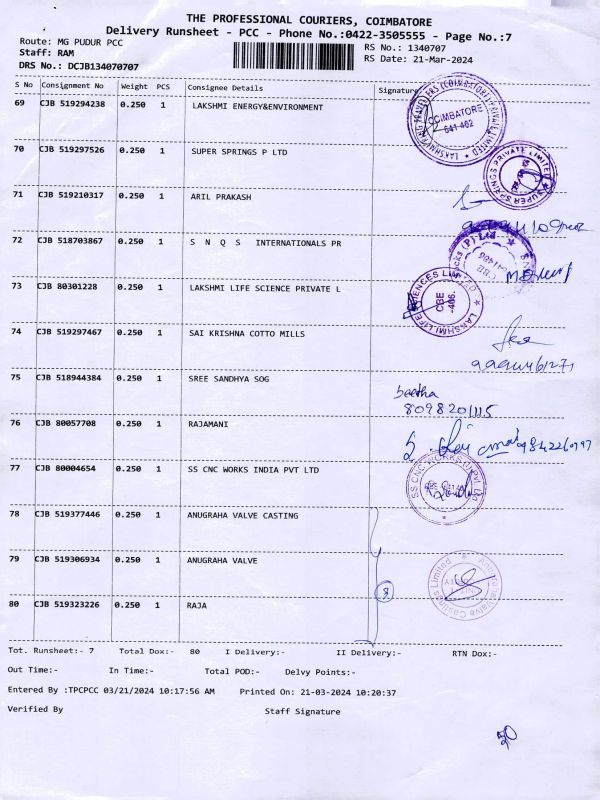 THE PROFESSIONAL COURIERS, COIMBATORE
Delivery Runsheet - PCC - Phone No.:0422-3505555 - Page No.:7
Route: MG PUDUR PCC
RS No.: 1340707
Staff: RAM
RS Date: 21-Mar-2024
DRS No.: DCJB134070707
S No Consignment No Weight PCS Consignee Details Signature
69 CJB 519294238 0.250 1 LAKSHMI ENERGY&ENVIRONMENT
COIMBATORE
641 402
70 CJB 519297526 0.250 1 SUPER SPRINGS P LTD
SUPER SPRINGS PRIVATE LIMITED
71 CJB 519210317 0.250 1 ARIL PRAKASH
72 CJB 518703867 0.250 1 S N Q S INTERNATIONALS PR
(P) Ltd
73 CJB 80301228 0.250 1 LAKSHMI LIFE SCIENCE PRIVATE L
LAKSHMI LIFE SCIENCES LIMITED
CBE
-406.
74 CJB 519297467 0.250 1 SAI KRISHNA COTTO MILLS
75 CJB 518944384 0.250 1 SREE SANDHYA SOG
8098201115
76 CJB 80057708 0.250 1 RAJAMANI
77 CJB 80004654 0.250 1 SS CNC WORKS INDIA PVT LTD
SS CNC WORKS (I) PVT LTD
78 CJB 519377446 0.250 1 ANUGRAHA VALVE CASTING
79 CJB 519306934 0.250 1 ANUGRAHA VALVE
Anugraha Valve Castings Limited
80 CJB 519323226 0.250 1 RAJA
Tot. Runsheet:- 7 Total Dox:- 80 I Delivery:- II Delivery:- RTN Dox:-
Out Time:- In Time:- Total POD:- Delvy Points:-
Entered By :TPCPCC 03/21/2024 10:17:56 AM Printed On: 21-03-2024 10:20:37
Verified By Staff Signature